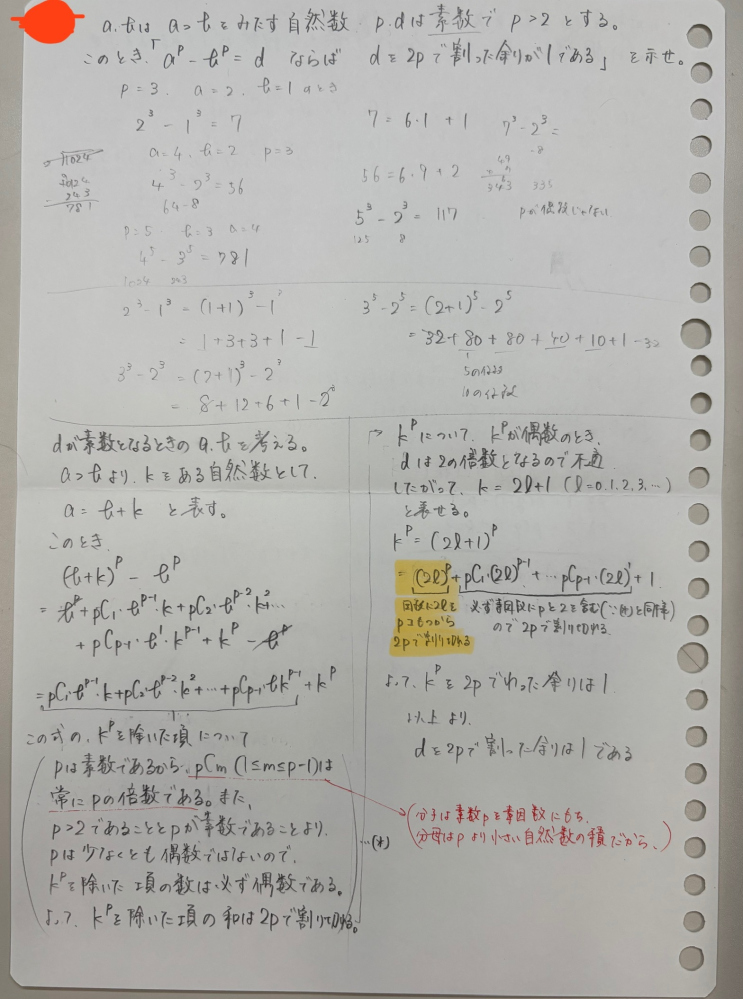 a, bは a>b をみたす自然数 p, dは素数で p>2 とする。
このとき、「a^p - b^p = d ならば dを2pで割った余りが1である」を示せ。
p=3, a=2, b=1 のとき
2^3 - 1^3 = 7
7 = 6・1 + 1
7^3 - 2^3 =
-8
49
343
335
a=4, b=2 p=3
4^3 - 2^3 = 56
64-8
56 = 6・9 + 2
5^3 - 2^3 = 117
125 8
pが倍数じゃない
1024
1024
243
781
p=5 b=3 a=4
4^5 - 3^5 = 781
1024 243
2^3 - 1^3 = (1+1)^3 - 1^3
= 1+3+3+1-1
3^3 - 2^3 = (2+1)^3 - 2^3
= 8+12+6+1-2^3
3^5 - 2^5 = (2+1)^5 - 2^5
= 32+80+80+40+10+1-32
5の倍数
10の倍数
dが素数となるときの a, b を考える。
a>b より、kをある自然数として、
a = b+k と表す。
このとき
(b+k)^p - b^p
= b^p + pC1・b^{p-1}・k + pC2・b^{p-2}・k^2+…
+ pCp-1・b^1・k^{p-1} + k^p - b^p
= pC1・b^{p-1}・k + pC2・b^{p-2}・k^2 + … + pCp-1・b・k^{p-1} + k^p
この式の、k^pを除いた項について
pは素数であるから、pCm (1≤m≤p-1)は
常にpの倍数である。また、
p>2であることとpが素数であることより、
pは少なくとも偶数ではないので、
k^pを除いた項の数は必ず偶数である。
よって、k^pを除いた項の和は2pで割り切れる。
…(*)
(分子は素数pを素因数にもち、
分母はpより小さい自然数の積だから、)
k^pについて、k^pが偶数のとき、
dは2の倍数となるので不適
したがって、k = 2l+1 (l=0,1,2,3,…)
と表せる。
k^p = (2l+1)^p
= (2l)^p + pC1・(2l)^{p-1} + … pCp-1・(2l)^1 + 1
因数に2lを
pコもつから
2pで割り切れる
必ず素因数にpと2を含む(∵(*)と同様)
ので2pで割り切れる
よって、k^pを2pでわった余りは1
以上より、
dを2pで割った余りは1である